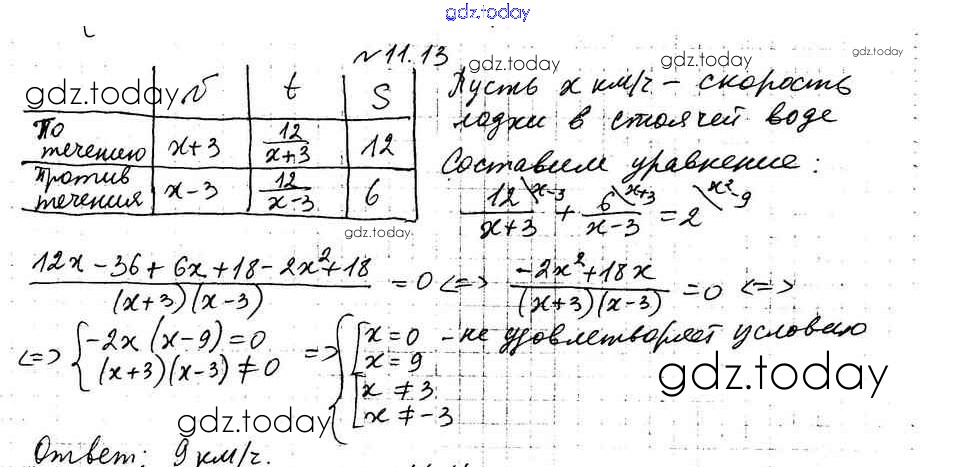 gdz.today
№ 11.13
gdz.today
gdz.today
gdz.today
v t S
По течению x+3 12/(x+3) 12
Против течения x-3 12/(x-3) 6
Пусть x км/ч - скорость
лодки в стоячей воде
Составим уравнение:
12\x-3/(x+3) + 6\x+3/(x-3) = 2\x²-9
gdz.today
(12x-36+6x+18-2x²+18)/((x+3)(x-3)) = 0 <=> (-2x²+18x)/((x+3)(x-3)) = 0 <=>
<=> { -2x(x-9)=0 => { [ x=0 - не удовлетворяет условию
(x+3)(x-3)≠0 x=9
[ x≠3
x≠-3
gdz.today
gdz.today
Ответ: 9 км/ч.